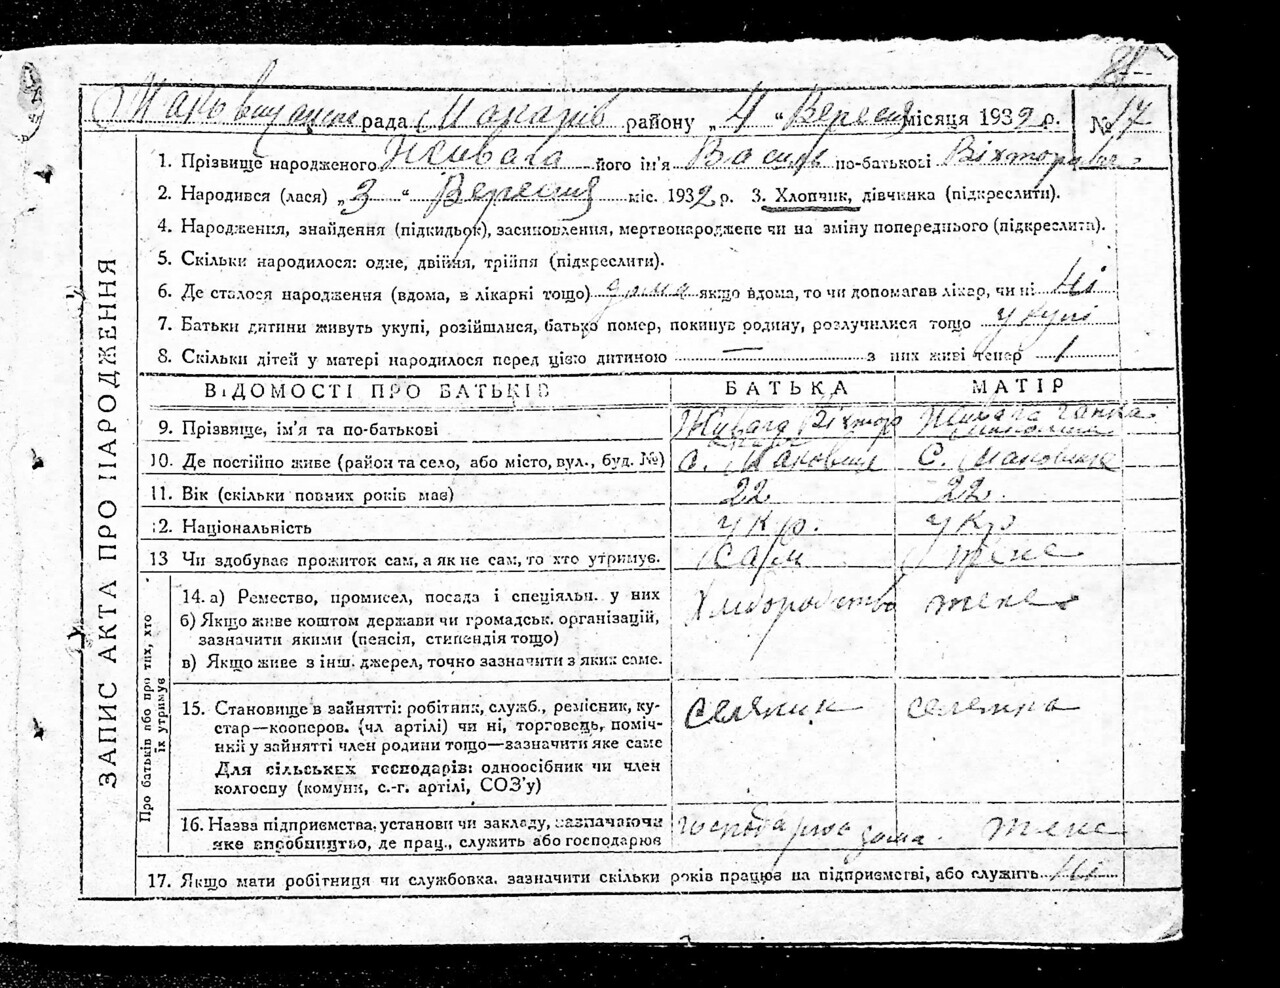 рада Макарів району „4“ Вересня місяця 1932 р. № 17
1. Прізвище народженого Живага його ім'я Василь по-батькові Вікторович
2. Народився (лася) „3“ Вересня міс. 1932 р. 3. Хлопчик, дівчинка (підкреслити).
4. Народження, знайдення (підкидьок), засиновлення, мертвонароджене чи на зміну попереднього (підкреслити).
5. Скільки народилося: одне, двійня, трійня (підкреслити).
6. Де сталося народження (вдома, в лікарні тощо) дома якщо вдома, то чи допомагав лікар, чи ні Ні
7. Батьки дитини живуть укупі, розійшлися, батько помер, покинув родину, розлучилися тощо укупі
8. Скільки дітей у матері народилося перед цією дитиною — з них живі тепер 1
ЗАПИС АКТА ПРО НАРОДЖЕННЯ
ВІДОМОСТІ ПРО БАТЬКІВ БАТЬКА МАТІР
9. Прізвище, ім'я та по-батькові Живага Віктор Живага Ганна
10. Де постійно живе (район та село, або місто, вул., буд. №) с. Маковище с. Маковище
11. Вік (скільки повних років має) 22 22
12. Національність укр. укр
13 Чи здобуває прожиток сам, а як не сам, то хто утримує. сам теж
Про батьків або про тих, хто їх утримує
14. а) Ремество, промисел, посада і спеціяльн. у них Хліборобство теж
б) Якщо живе коштом держави чи громадськ. організацій,
зазначити якими (пенсія, стипендія тощо)
в) Якщо живе з інш. джерел, точно зазначити з яких саме.
15. Становище в зайнятті: робітник, служб., ремісник, ку- селяник селянка
стар—кооперов. (чл артілі) чи ні, торговець, поміч-
ник у зайнятті член родини тощо—зазначити яке саме
Для сільських господарів: одноосібник чи член
колгоспу (комуни, с.-г. артілі, СОЗ'у)
16. Назва підприємства, установи чи закладу, зазначаючи господарює дома теж
яке виробництво, де прац., служить або господарює
17. Якщо мати робітниця чи службовка, зазначити скільки років працює на підприємстві, або служить Ні